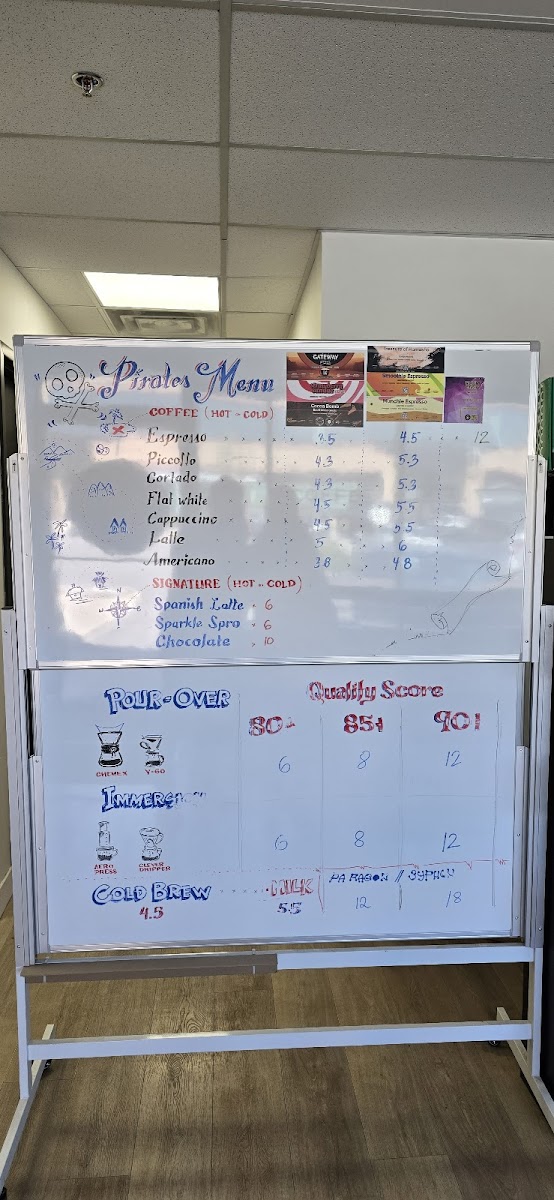 Pirates Menu
COFFEE (HOT - COLD)
GATEWAY
Smoothie Espresso
Munchie Espresso
Cocoa Bomb
Espresso 3.5 4.5 12
Piccollo 4.3 5.3
Cortado 4.3 5.3
Flat white 4.5 5.5
Cappuccino 4.5 5.5
Latte 5 6
Americano 3.8 4.8
SIGNATURE (HOT - COLD)
Spanish Latte 6
Sparkle Spro 6
Chocolate 10
POUR-OVER
Quality Score
80+ 85+ 90+
6 8 12
CHEMEX V-60
IMMERSION
6 8 12
AERO PRESS
CLEVER DRIPPER
COLD BREW MILK
4.5 5.5
PARAGON // SYPHON
12 18